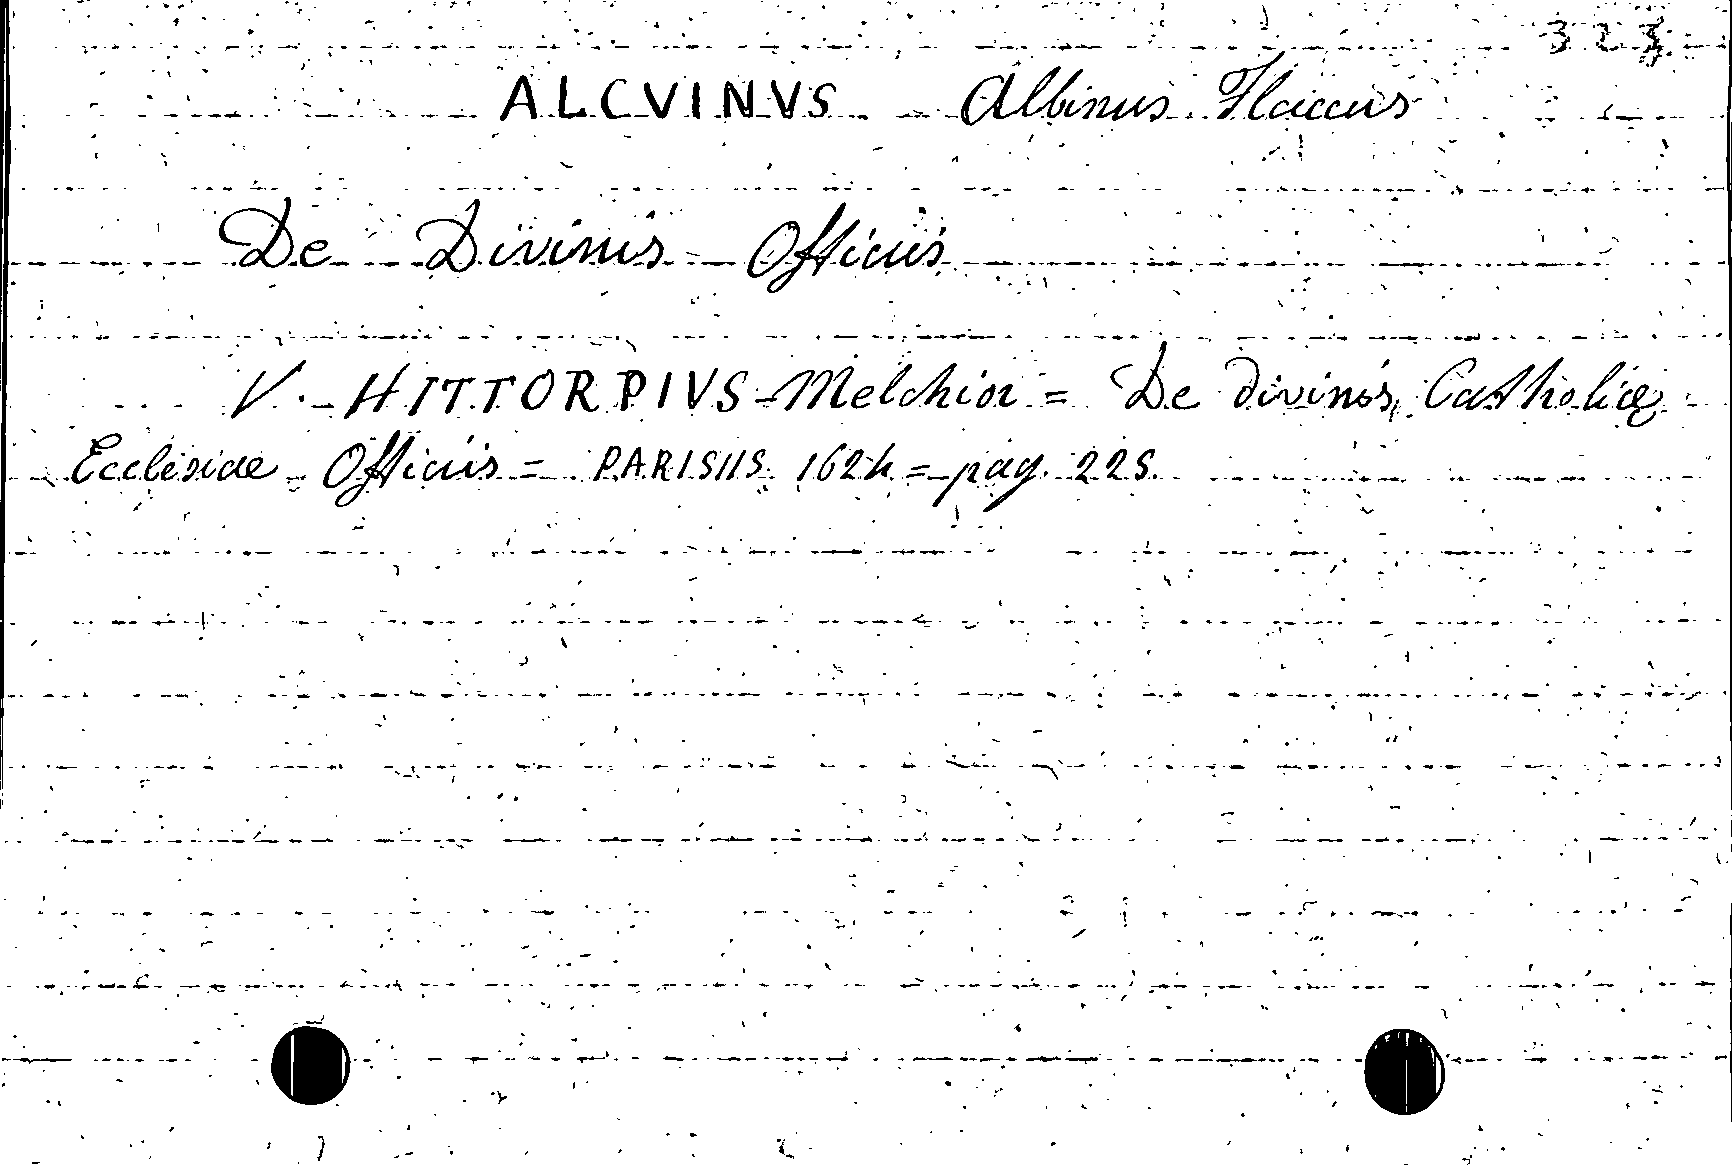 323
ALCVINVS Albinus Flaccus
De Divinis Officiis
V. HITTORPIVS Melchior = De divinis Catholicæ
Ecclesiae Officiis = PARISIIS 1624 = pag. 225.